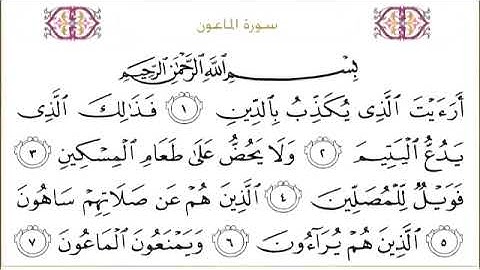 سورة الماعون
بِسْمِ اللَّهِ الرَّحْمَٰنِ الرَّحِيمِ
أَرَءَيْتَ الَّذِى يُكَذِّبُ بِالدِّينِ ١ فَذَٰلِكَ الَّذِى
يَدُعُّ الْيَتِيمَ ٢ وَلَا يَحُضُّ عَلَىٰ طَعَامِ الْمِسْكِينِ ٣
فَوَيْلٌ لِّلْمُصَلِّينَ ٤ الَّذِينَ هُمْ عَن صَلَاتِهِمْ سَاهُونَ
٥ الَّذِينَ هُمْ يُرَآءُونَ ٦ وَيَمْنَعُونَ الْمَاعُونَ ٧